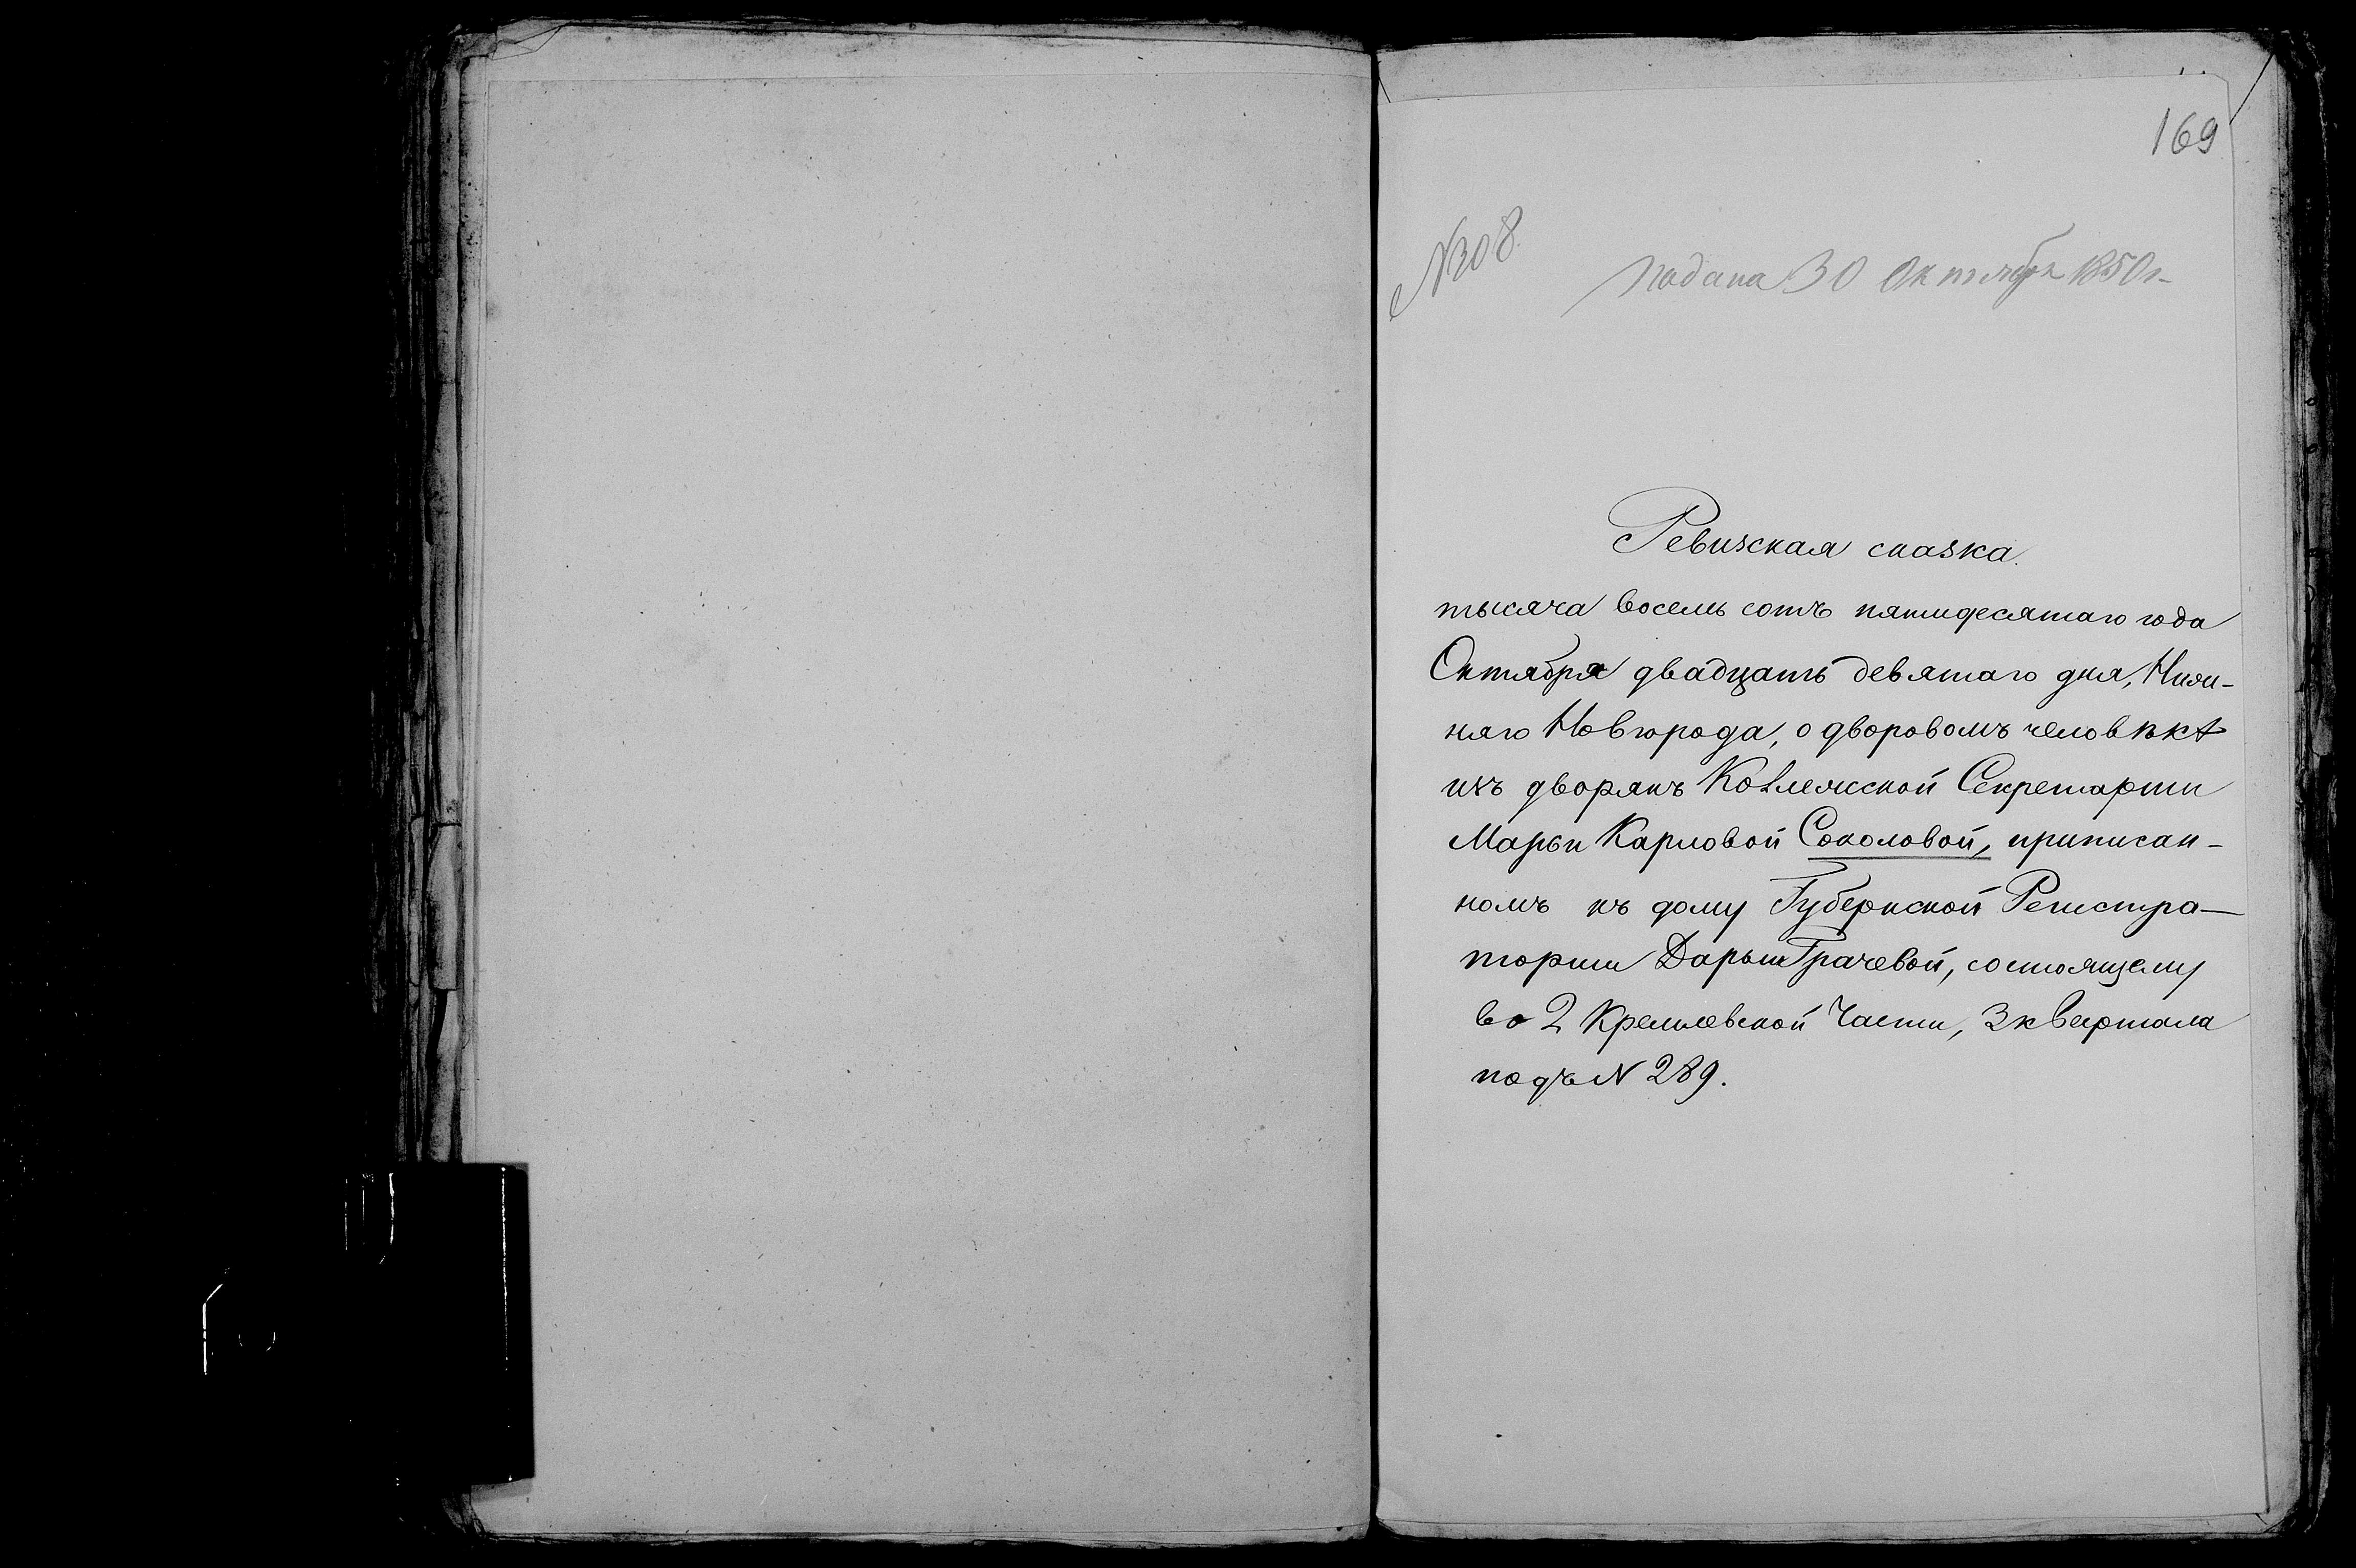 169
№308
подана 30 Октября 1850 г.
Ревизская сказка.
тысяча восемь сотъ пятидесятаго года
Октября двадцать девятаго дня, Ниж-
няго Новгорода, о дворовомъ человѣкѣ
изъ дворянъ Коллежской Секретарши
Марьи Карловой Соколовой, приписан-
номъ къ дому Губернской Регистра-
торши Дарьи Грачевой, состоящему
во 2 Кремлевской Части, 3 квартала
подъ N 289.